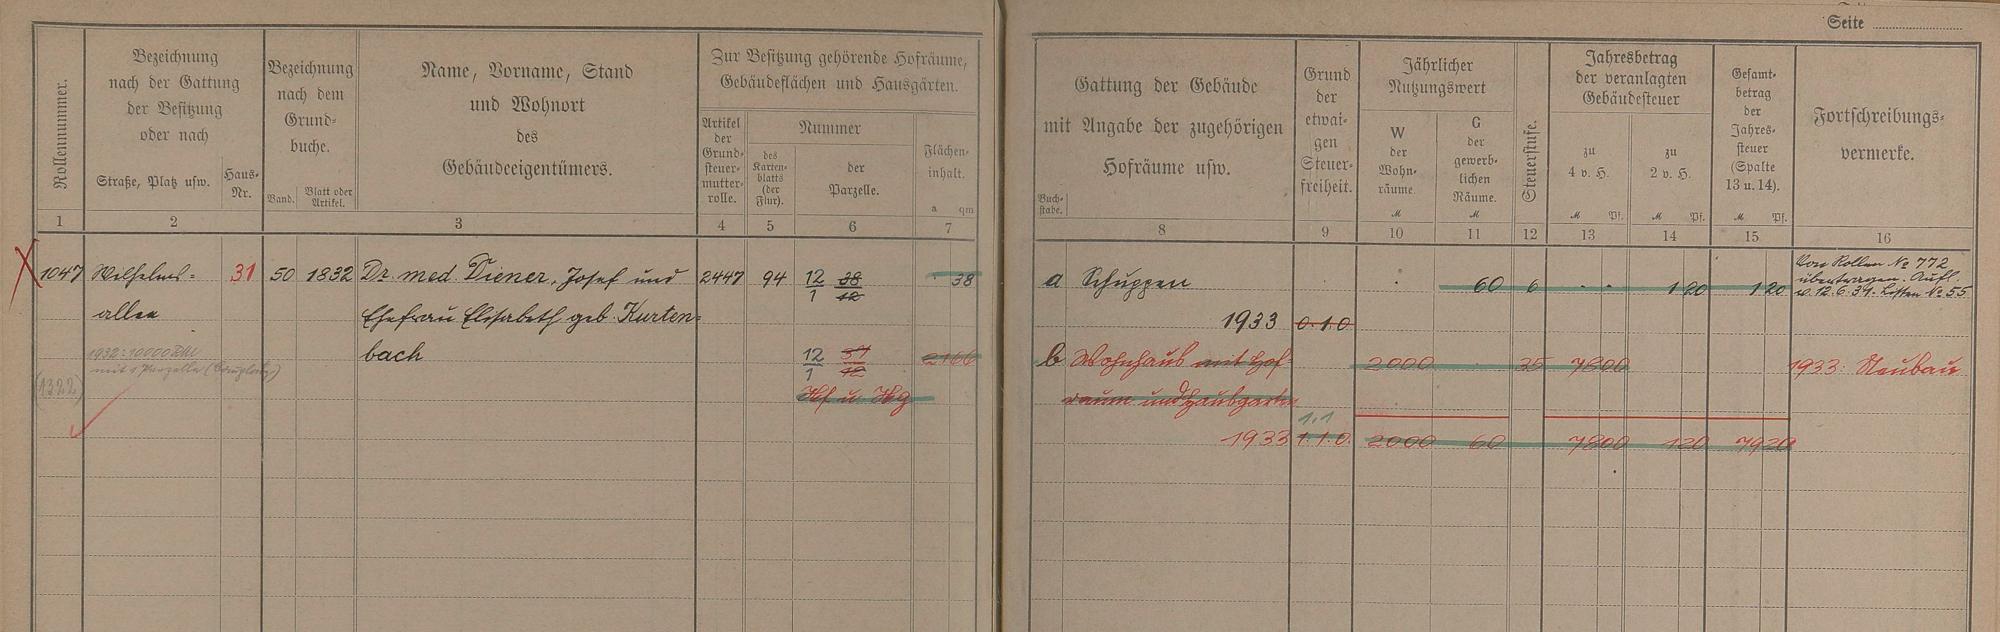 Seite
Rollennummer.
Bezeichnung
nach der Gattung
der Besitzung
oder nach
Straße, Platz usw.
Haus-
Nr.
Bezeichnung
nach dem
Grund-
buche.
Band.
Blatt oder
Artikel.
Name, Vorname, Stand
und Wohnort
des
Gebäudeeigentümers.
Zur Besitzung gehörende Hofräume,
Gebäudeflächen und Hausgärten.
Artikel
der
Grund-
steuer-
mutter-
rolle.
Nummer
des
Karten-
blatts
(der
Flur).
der
Parzelle.
Flächen-
inhalt.
a qm
1 2 3 4 5 6 7
Gattung der Gebäude
mit Angabe der zugehörigen
Hofräume usw.
Buch-
stabe.
Grund
der
etwai-
gen
Steuer-
freiheit.
Jährlicher
Nutzungswert
W
der
Wohn-
räume.
M
G
der
gewerb-
lichen
Räume.
M
Steuerstufe.
Jahresbetrag
der veranlagten
Gebäudesteuer
zu
4 v. H.
M Pf.
zu
2 v. H.
M Pf.
Gesamt-
betrag
der
Jahres-
steuer
(Spalte
13 u. 14).
M Pf.
Fortschreibungs-
vermerke.
8 9 10 11 12 13 14 15 16
1047 Wilhelms- 31 50 1832 Dr. med. Diener, Josef und 2447 94 12/1 38/12 38
allee Ehefrau Elisabeth geb. Kurten-
bach 12/1 2166
1932: 10000 RM
mit 1 Parzelle
(1322)
Hf u. Hg
a Schuppen 60 6 1 20 1 20
Von Rollen No 772
übertragen. Aufl.
v. 12.6.31. Listen No 55
1933 0.1.0
b Wohnhaus mit Hof- 2000 35 7800 1933: Neubau
raum und Hausgarten
1.1
1933 1.1.0. 2000 60 7800 120 7920